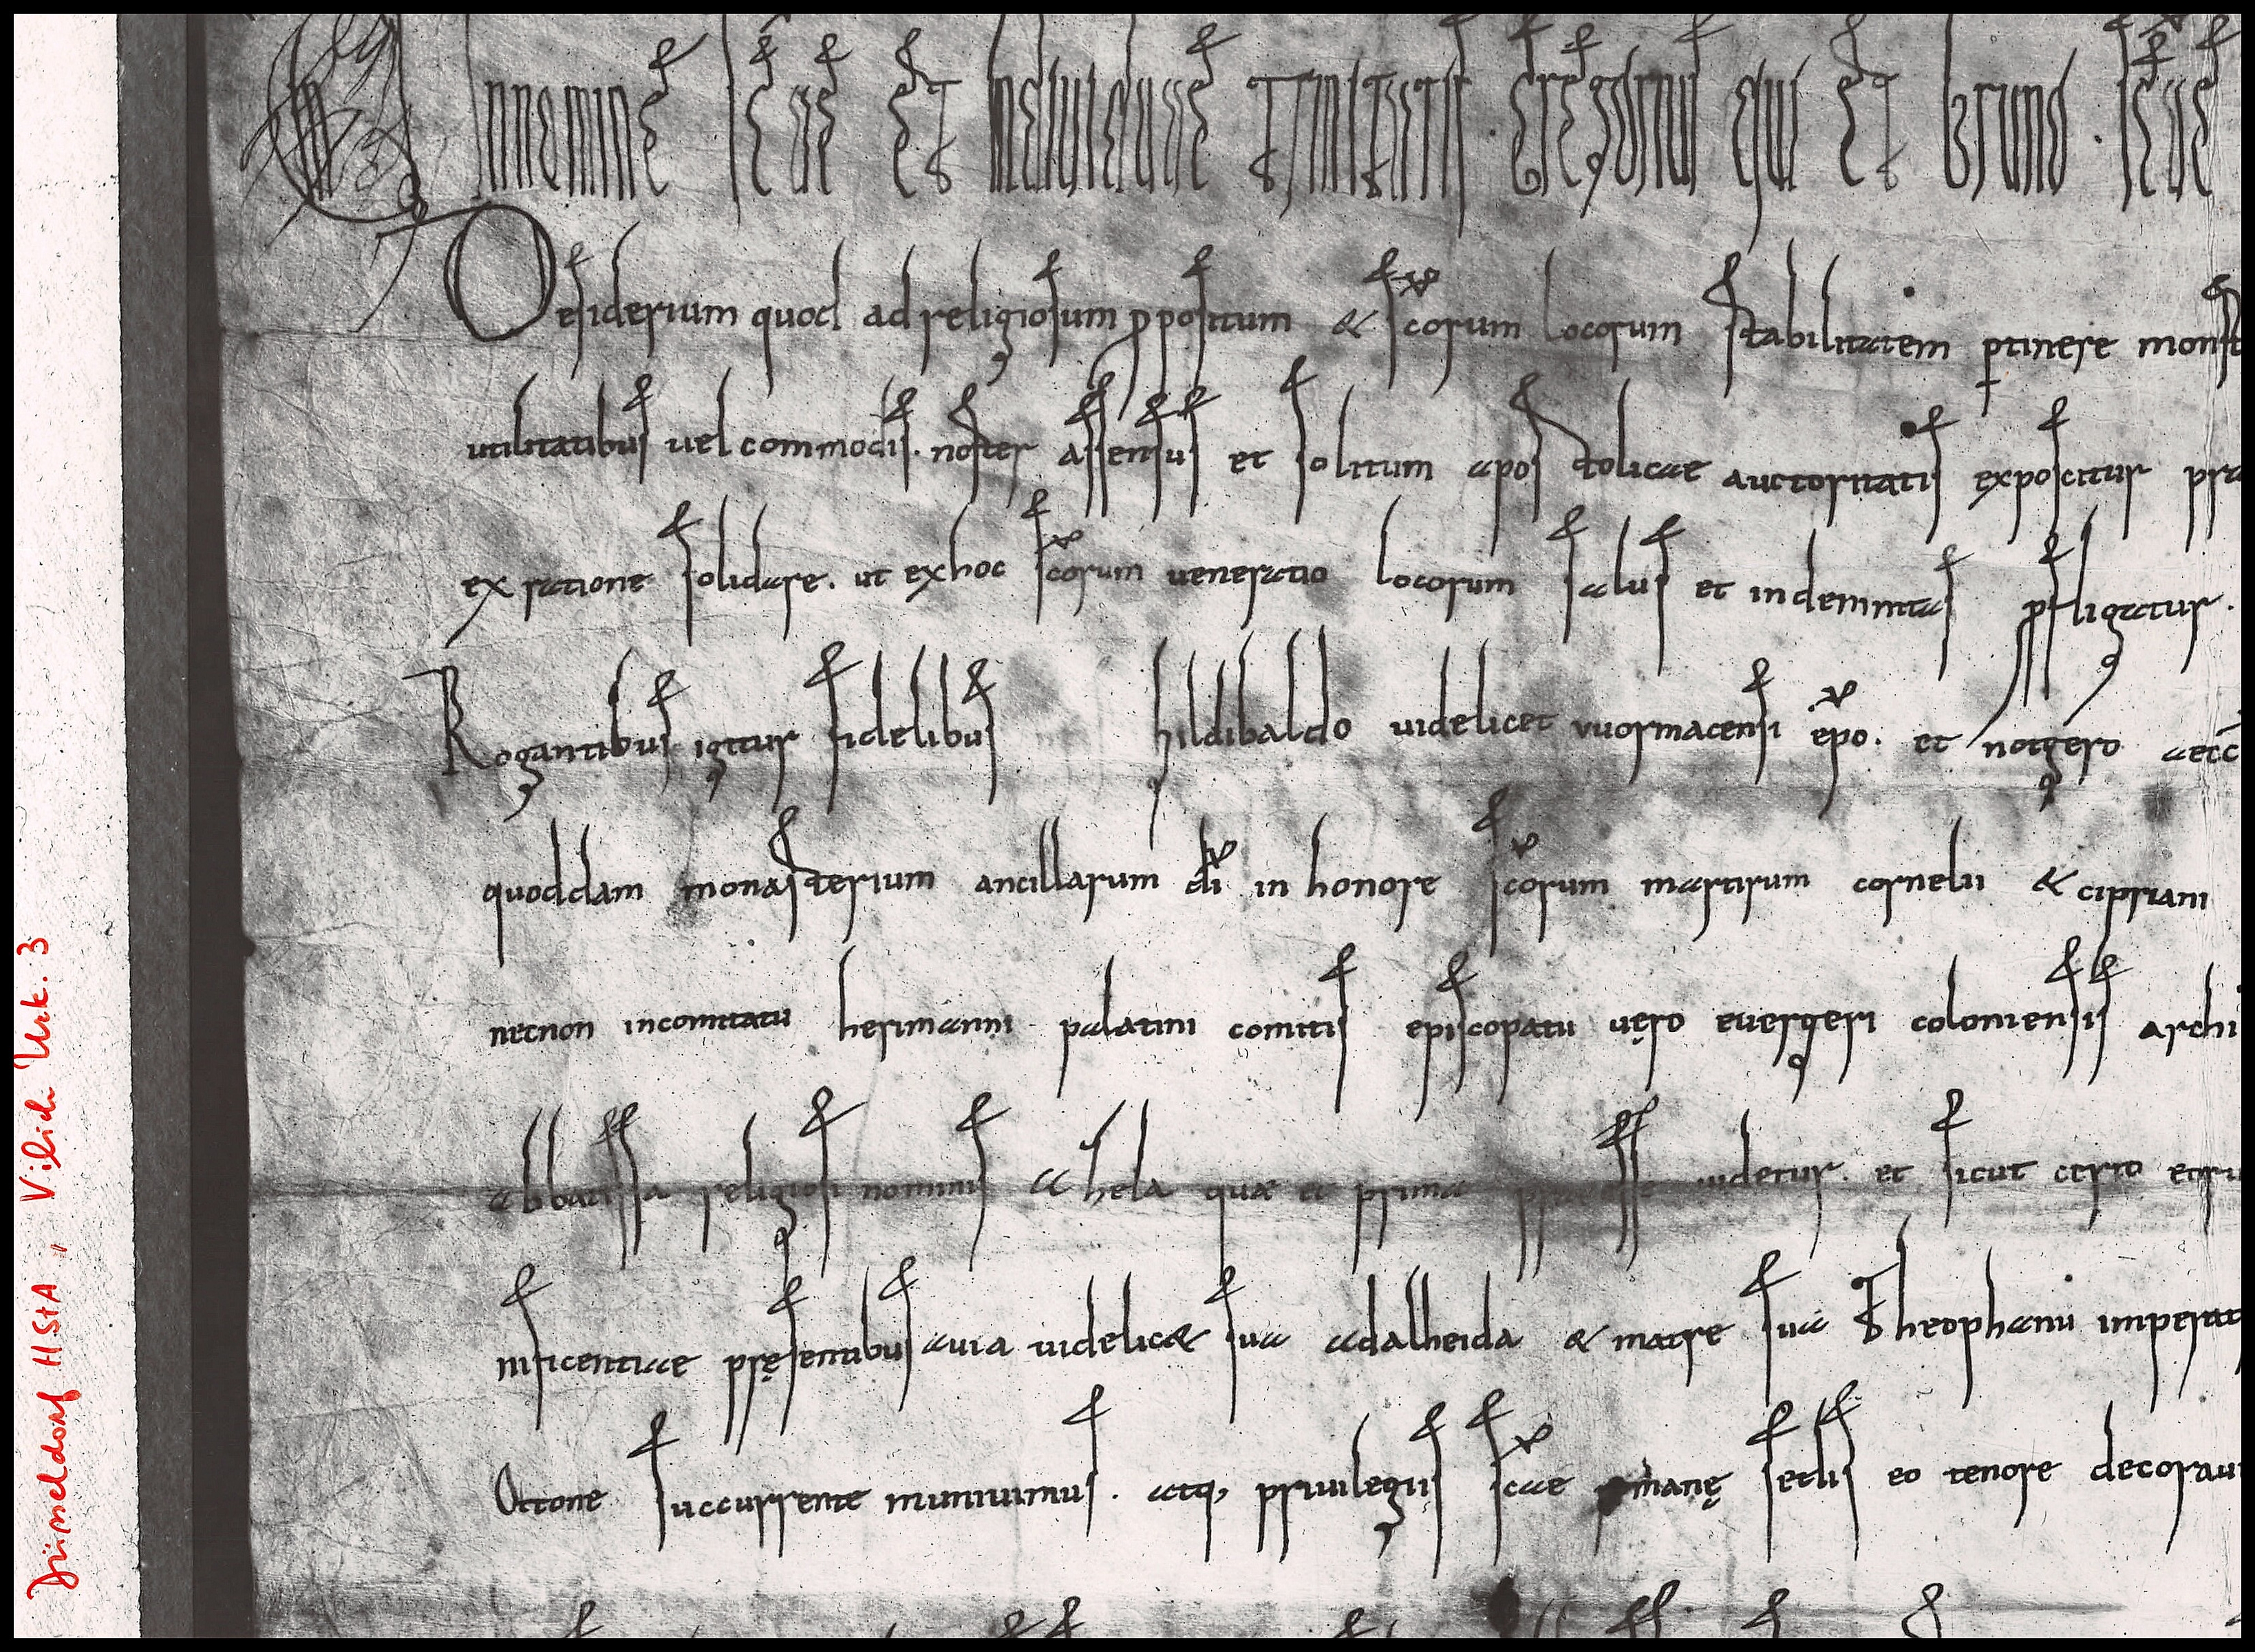 In nomine sc̄ae et indiuiduae trinitatis. Gregorius qui et bruno. sc̄ae
Desiderium quod ad religiosum ꝓpositum & sc̄orum locorum stabilitatem ꝑtinere monst
utilitatibus uel commodis. noster assensus et solitum apostolicae auctoritatis exposcitur
ex ratione solidare. ut ex hoc sc̄orum ueneratio locorum salus et indemnitas
Rogantibus igitur fidelibus hildibaldo uidelicet vuormacensi ep̄o. et notgero aecc̄
quoddam monasterium ancillarum dī in honore sc̄orum martirum cornelii & cipriani
necnon in comitatu herimanni palatini comitis episcopatu uęro euergeri coloniensis archi
abbatissa religiosi nominis athela quae et prima praeesse uidetur. et sicut certo
nificentiae pręsentibus auia uidelic& sua adalheida & matre sua Theophanu imperat
Ottone succurrente muniuimus. atq, priuilegiis sc̄ae romanę sedis eo tenore decoraui
Düsseldorf HStA, Vilich Urk. 3